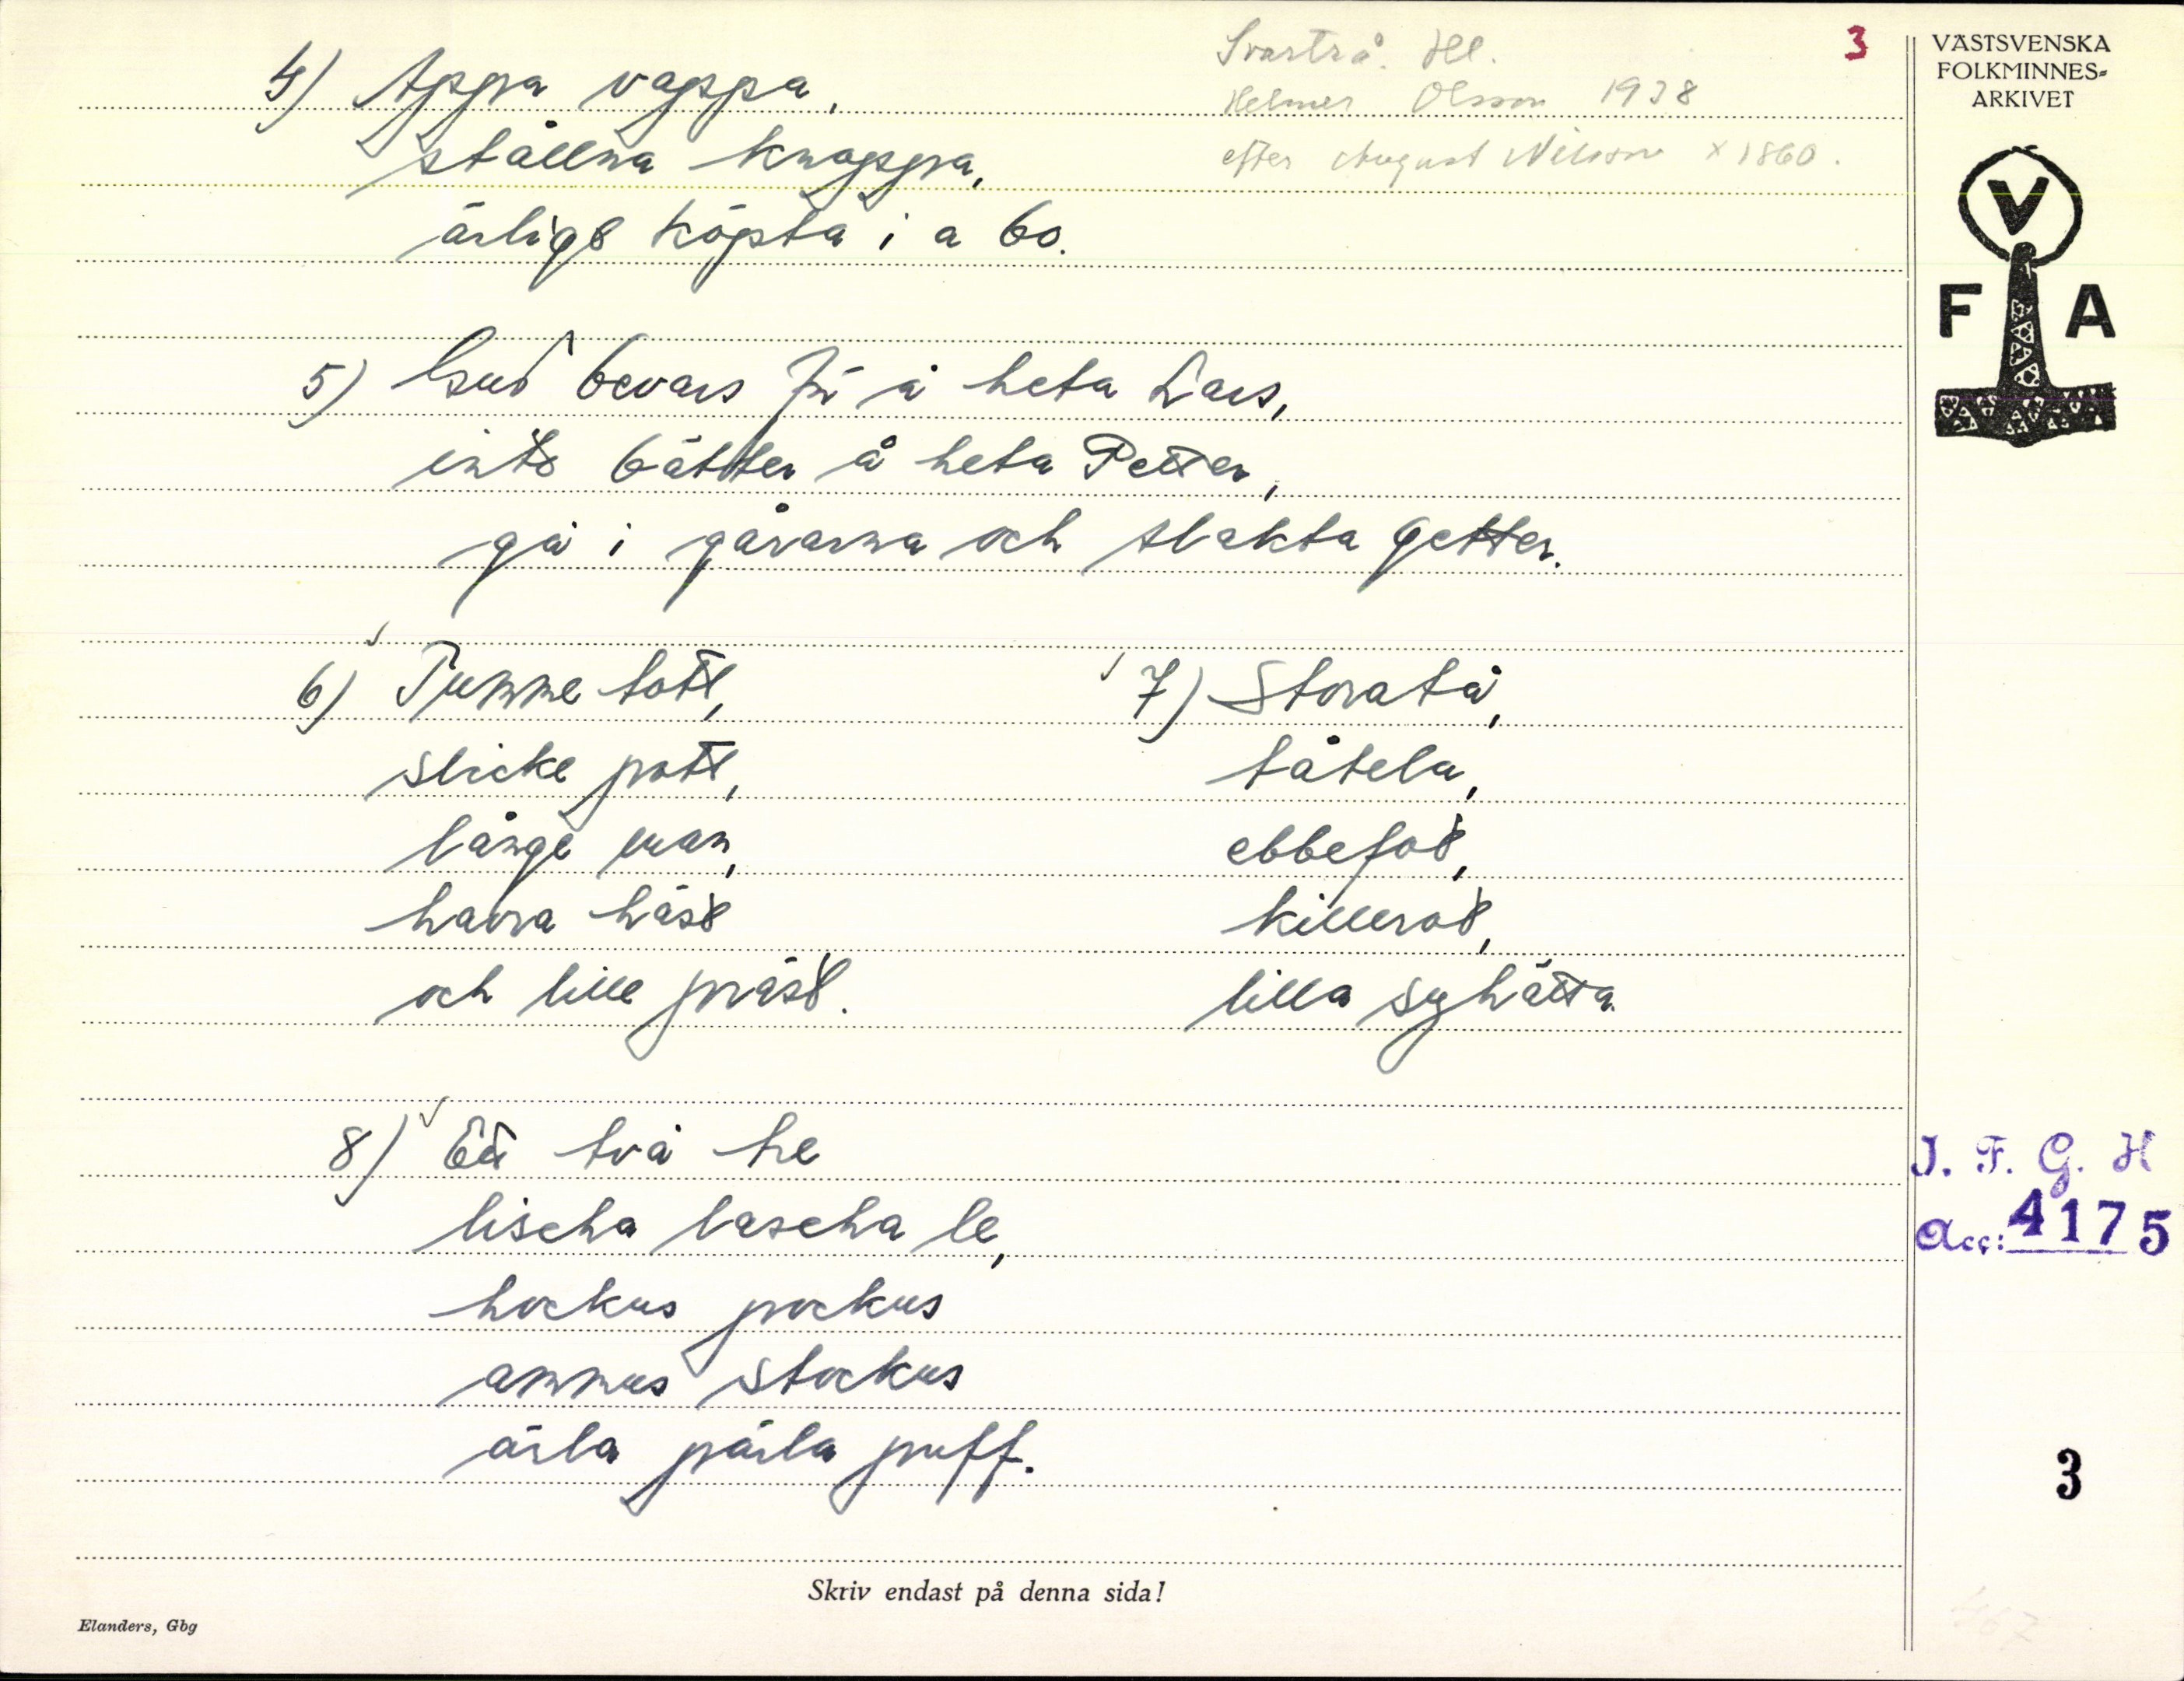 Svartrå. Hl.
Helmer Olsson 1938
efter August Nilsson x 1860.
3
VÄSTSVENSKA
FOLKMINNES-
ARKIVET
V
F A
4) Appra vappa,
stållna knappra,
ärligt köpta i a bo.
5) Gud bevars för å heta Lars,
inte bätter å heta Petter,
gå i gårarna och slakta getter.
6) Tumme tott,
slicke pott,
långe man,
havra häst
och lille präst.
7) Storatå,
tåtela,
ebbefot,
killerot,
lilla syhätta.
8) Ett två tre
lischa lascha le,
hockus pockus
ammus stockus
ärla pärla puff.
I. F. G. H
Acc: 4175
3
Skriv endast på denna sida!
Elanders, Gbg